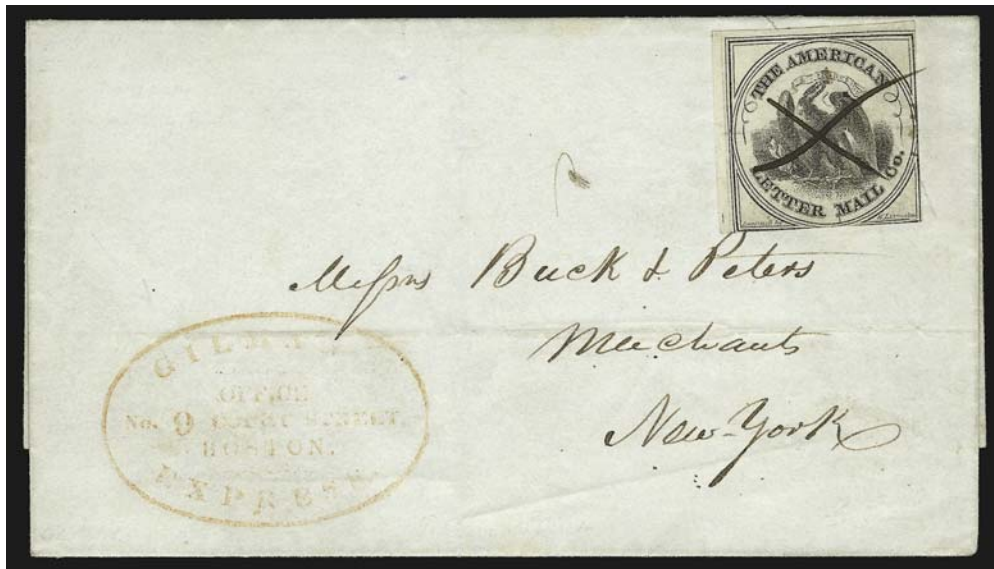 THE AMERICAN
LETTER MAIL Co.
Messrs Buck & Peters
Merchants
New-York
OFFICE
No. 9 COURT STREET.
BOSTON.
EXPRESS